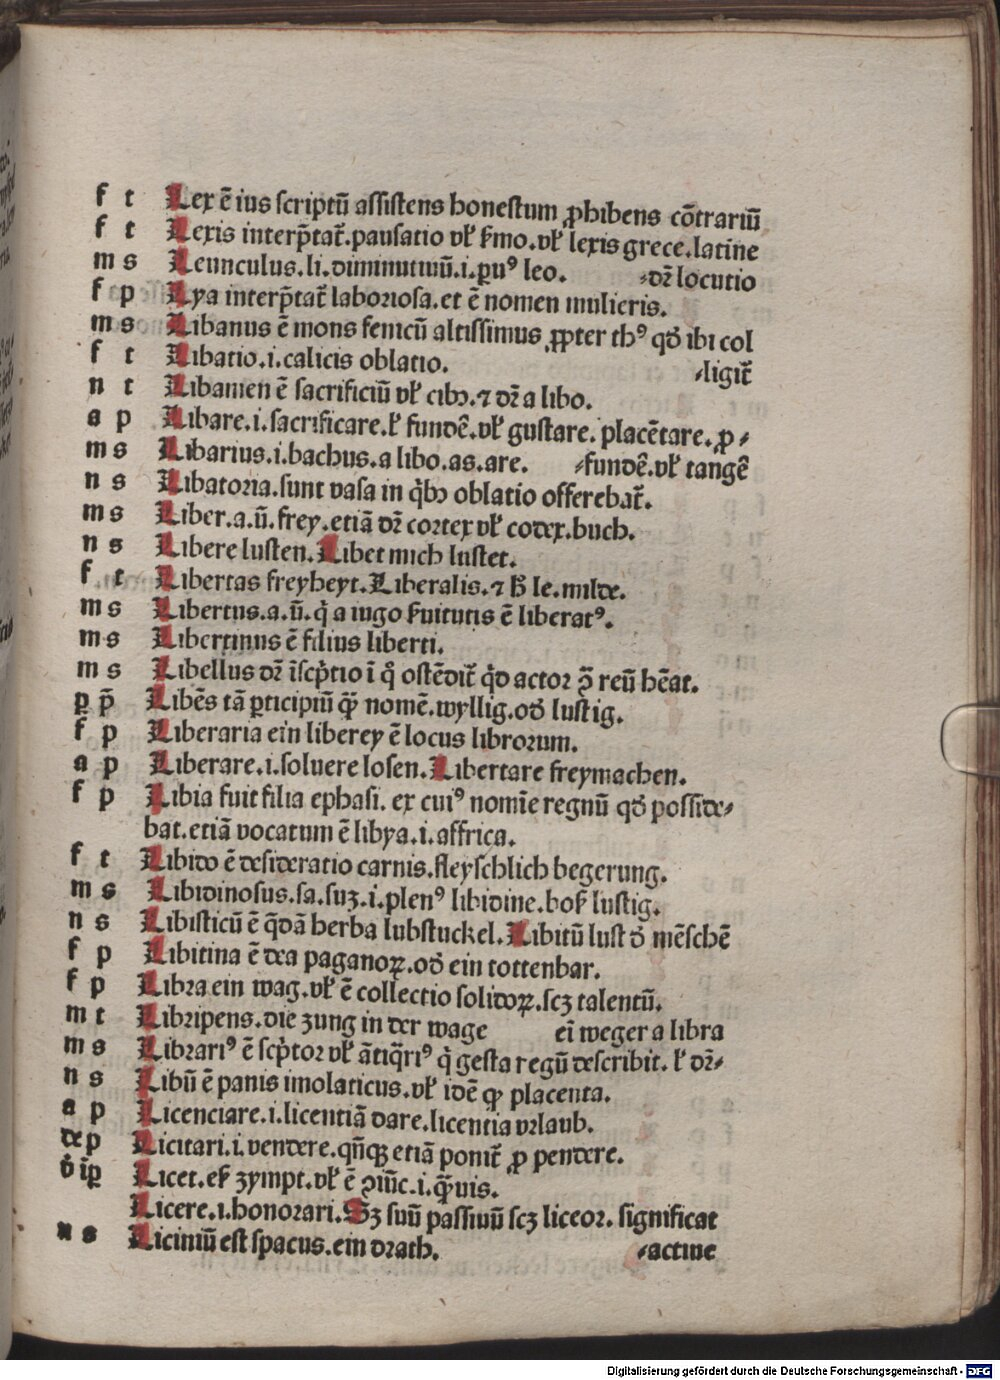 f t Lex ē ius scriptū assistens honestum ꝓhibens cōtrariū
f t Lexis interp̄tat̄. pausatio vl̄ s̄mo. vl̄ lexis grece. latine
m s Leunculus. li. diminutiuū. i. ꝑuꝰ leo. ⸗dr̄ locutio
f p Lya interp̄tat̄ laboriosa. et ē nomen mulieris.
m s Libanus ē mons fenicū altissimus ꝓpter thꝰ qd̄ ibi col
f t Libatio. i. calicis oblatio. ⸗ligit̄
n t Libamen ē sacrificiū vl̄ cibꝰ. ⁊ dr̄ a libo.
a p Libare. i. sacrificare. l̄ fundē. vl̄ gustare. placētare. ꝓ⸗
m s Libarius. i. bachus. a libo. as. are. ⸗fundē. vl̄ tangē
n s Libatoria. sunt vasa in q̄bꝰ oblatio offerebat̄.
m s Liber. a. ū. frey. etiā dr̄ cortex vl̄ codex. buch.
n s Libere lusten. Libet mich lustet.
f t Libertas freyheyt. Liberalis. ⁊ h̄ le. milde.
m s Libertus. a. ū. q̇ a iugo s̄uitutis ē liberatꝰ.
m s Libertinus ē filius liberti.
m s Libellus dr̄ īscp̄tio ī q̊ ostēdit̄ qd̄ actor ꝯ̄ reū hēat.
ꝑ p̄ Libēs tā ꝑticipiū qͣ̄ nomē. wyllig. od̄ lustig.
f p Liberaria ein liberey ē locus librorum.
a p Liberare. i. soluere losen. Libertare freymachen.
f p Libia fuit filia ephasi. ex cuiꝰ nomīe regnū qd̄ posside⸗
bat. etiā vocatum ē libya. i. affrica.
f t Libido ē desideratio carnis. fleyschlich begerung.
m s Libidinosus. sa. suꝫ. i. plenꝰ libidine. bos̄ lustig.
n s Libisticū ē q̄dā herba lubstuckel. Libitū lust d̄ mēschē
f p Libitina ē dea paganoꝝ. od̄ ein tottenbar.
f p Libra ein wag. vl̄ ē collectio solidoꝝ. scꝫ talentū.
m t Libripens. die zung in der wage eī weger a libra
m s Librariꝰ ē scp̄tor vl̄ ātiq̄riꝰ q̇ gesta regū describit. l̄ dr̄⸗
n s Libū ē panis imolaticus. vl̄ idē qͦ placenta.
a p Licenciare. i. licentiā dare. licentia vrlaub.
de p Licitari. i. vendere. qn̄qꝫ etiā ponit̄ ꝓ pendere.
v̄ iꝑ Licet. es̄ zympt. vl̄ ē ꝯiūc. i. qͣ̄uis.
Licere. i. honorari. Sꝫ suū passiuū scꝫ liceor. significat
n s Liciniū est spacus. ein drath. ⸗actiue
Digitalisierung gefördert durch die Deutsche Forschungsgemeinschaft - DFG